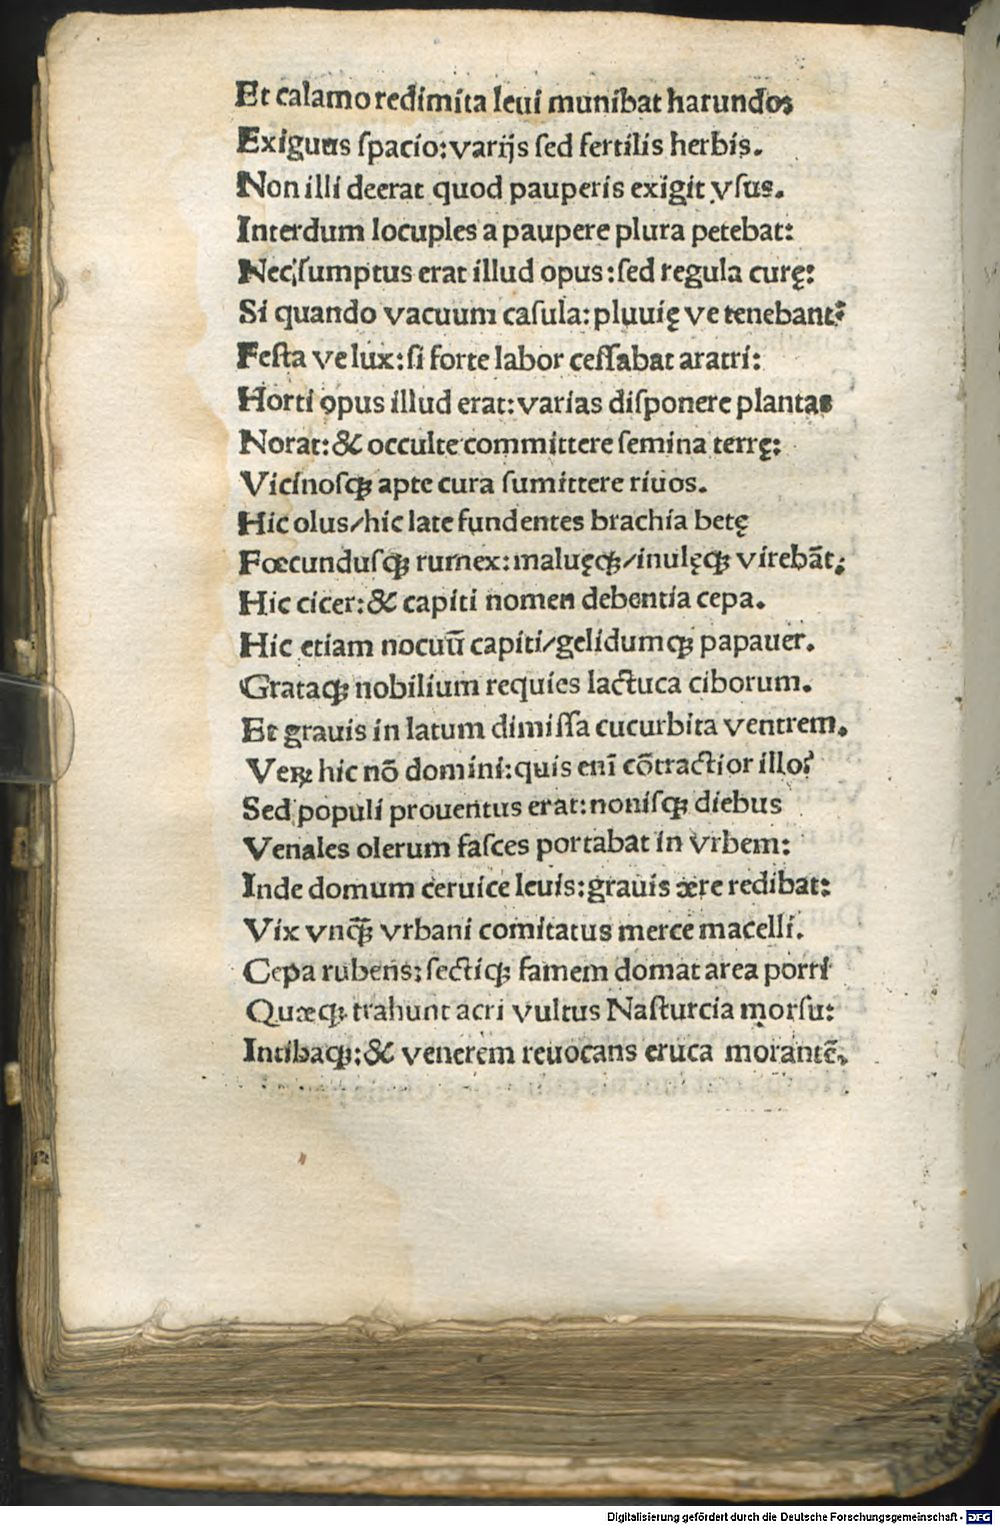 Et calamo redimita leui munibat harundo:
Exiguus ſpacio: varijs ſed fertilis herbis.
Non illi deerat quod pauperis exigit vſus.
Interdum locuples a paupere plura petebat:
Nec ſumptus erat illud opus: ſed regula curę:
Si quando vacuum caſula: pluuię ve tenebant:
Feſta ve lux: ſi forte labor ceſſabat aratri:
Horti opus illud erat: varias diſponere plantas
Norat: & occulte committere ſemina terrę:
Vicinoſqꝫ apte cura ſumittere riuos.
Hic olus/hic late fundentes brachia betę
Fœcunduſqꝫ rumex: maluęqꝫ/inulęqꝫ virebãt:
Hic cicer: & capiti nomen debentia cepa.
Hic etiam nocuū capiti/gelidumqꝫ papauer.
Grataqꝫ nobilium requies lactuca ciborum.
Et grauis in latum dimiſſa cucurbita ventrem.
Veꝝ hic nō domini: quis enī cōtractior illo?
Sed populi prouentus erat: noniſqꝫ diebus
Venales olerum faſces portabat in vrbem:
Inde domum ceruice leuis: grauis ære redibat:
Vix vnqꝫ̃ vrbani comitatus merce macelli.
Cepa rubens: ſectiqꝫ famem domat area porri
Quæqꝫ trahunt acri vultus Naſturcia morſu:
Intibaqꝫ: & venerem reuocans eruca morantē.
Digitalisierung gefördert durch die Deutsche Forschungsgemeinschaft - DFG